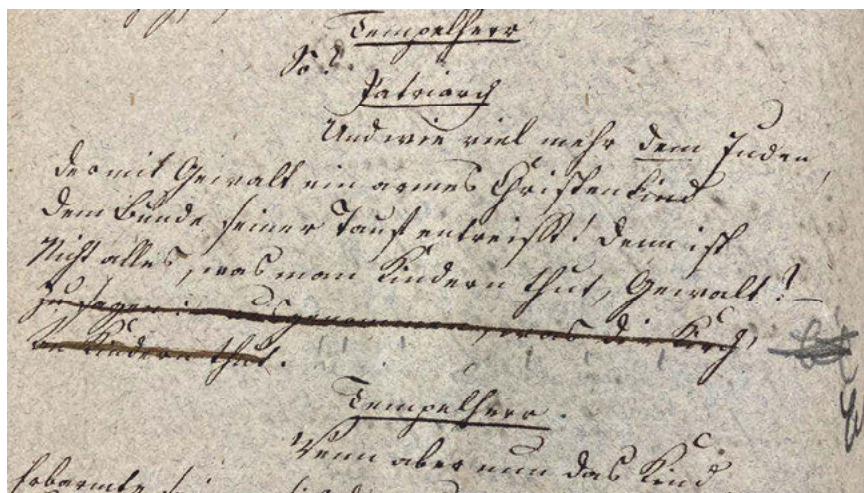 Tempelherr
So?
Patriarch
Und wie viel mehr dem Juden,
der mit Gewalt ein armes Christenkind
dem Bunde seiner Tauf entreißt! Denn ist
Nicht alles, was man Kindern thut, Gewalt? –
zu sagen: ausgenommen, was die Kirch'
an Kindern thut.
Tempelherr.
Wenn aber nun das Kind
Erbarmte seiner sich